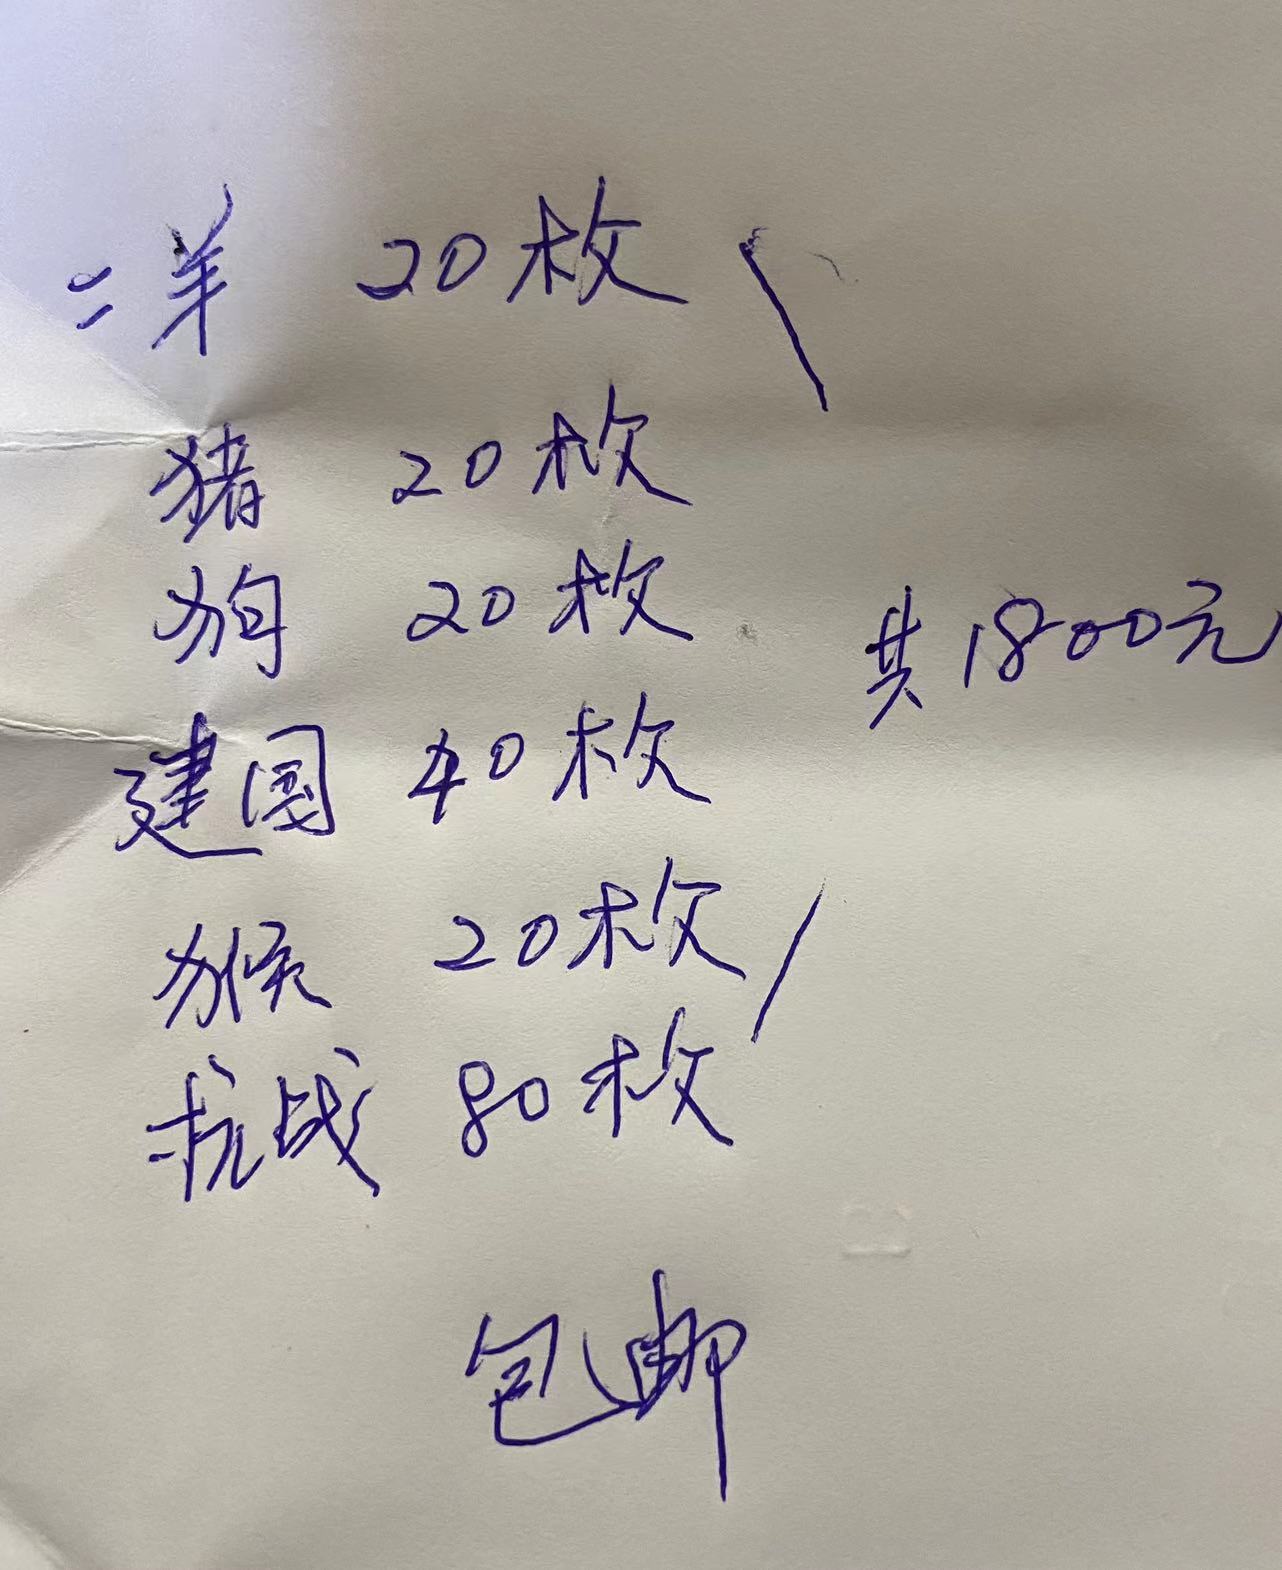 二羊 20枚
猪 20枚
狗 20枚
共1800元
建国 40枚
猴 20枚
抗战 80枚
包邮